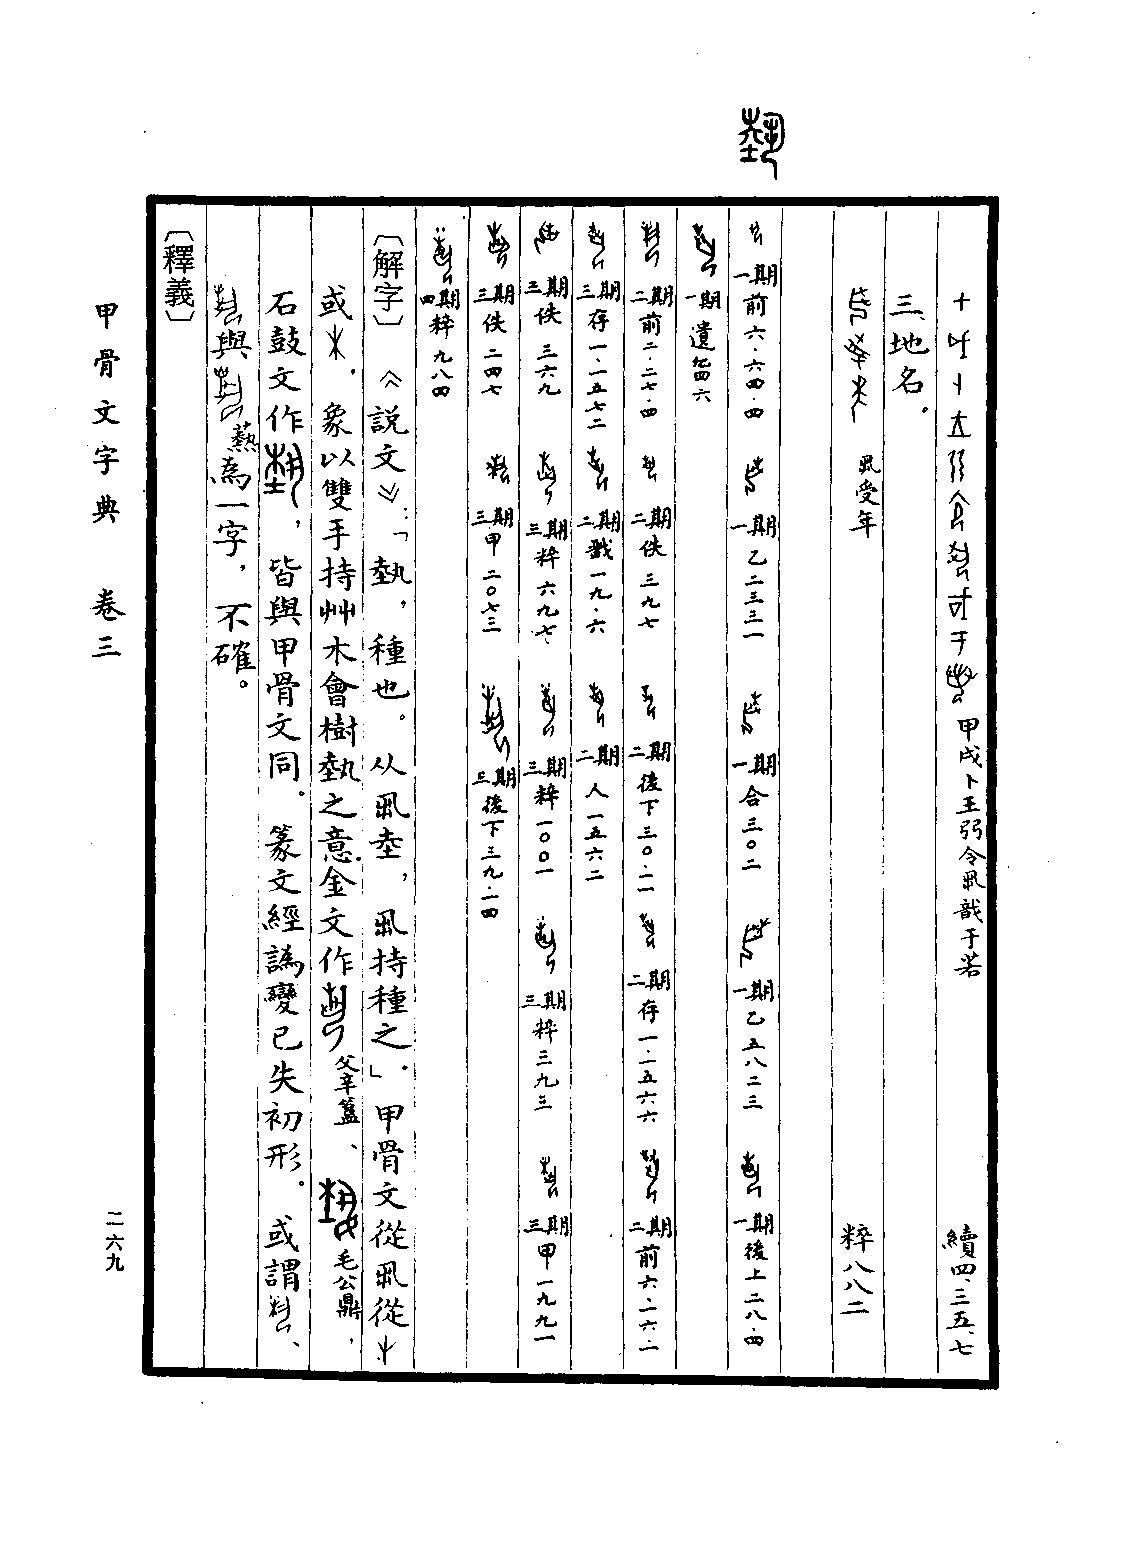 甲戌卜王弜令丮戠于若 續四.三五.七
三、地名。
丮受年 粹八八二
一期前六.六四.四 一期乙二三三一 一期合三〇二 一期乙五八二三 一期後上二八.四
一期遺四六
二期前二.二七.四 二期佚三九七 二期後下三〇.一一 二期存一.一五六六 二期前六.一六.一
三期存一.一五七二 二期戩一九.六 二期人一五六二
三期佚三六九 三期粹六九七 三期粹一〇〇一 三期粹三九三 三期甲一九九一
三期佚二四七 三期甲二〇七三 三期後下三九.一四
四期粹九八四
〔解字〕《說文》:「埶,種也。从丮坴,丮持種之.」甲骨文從丮從
或,象以雙手持艸木會樹埶之意.金文作 父辛簋、 毛公鼎,
石鼓文作 ,皆與甲骨文同.篆文經譌變已失初形.或謂 、
與 爇為一字,不確。
〔釋義〕
甲骨文字典 卷三
二六九